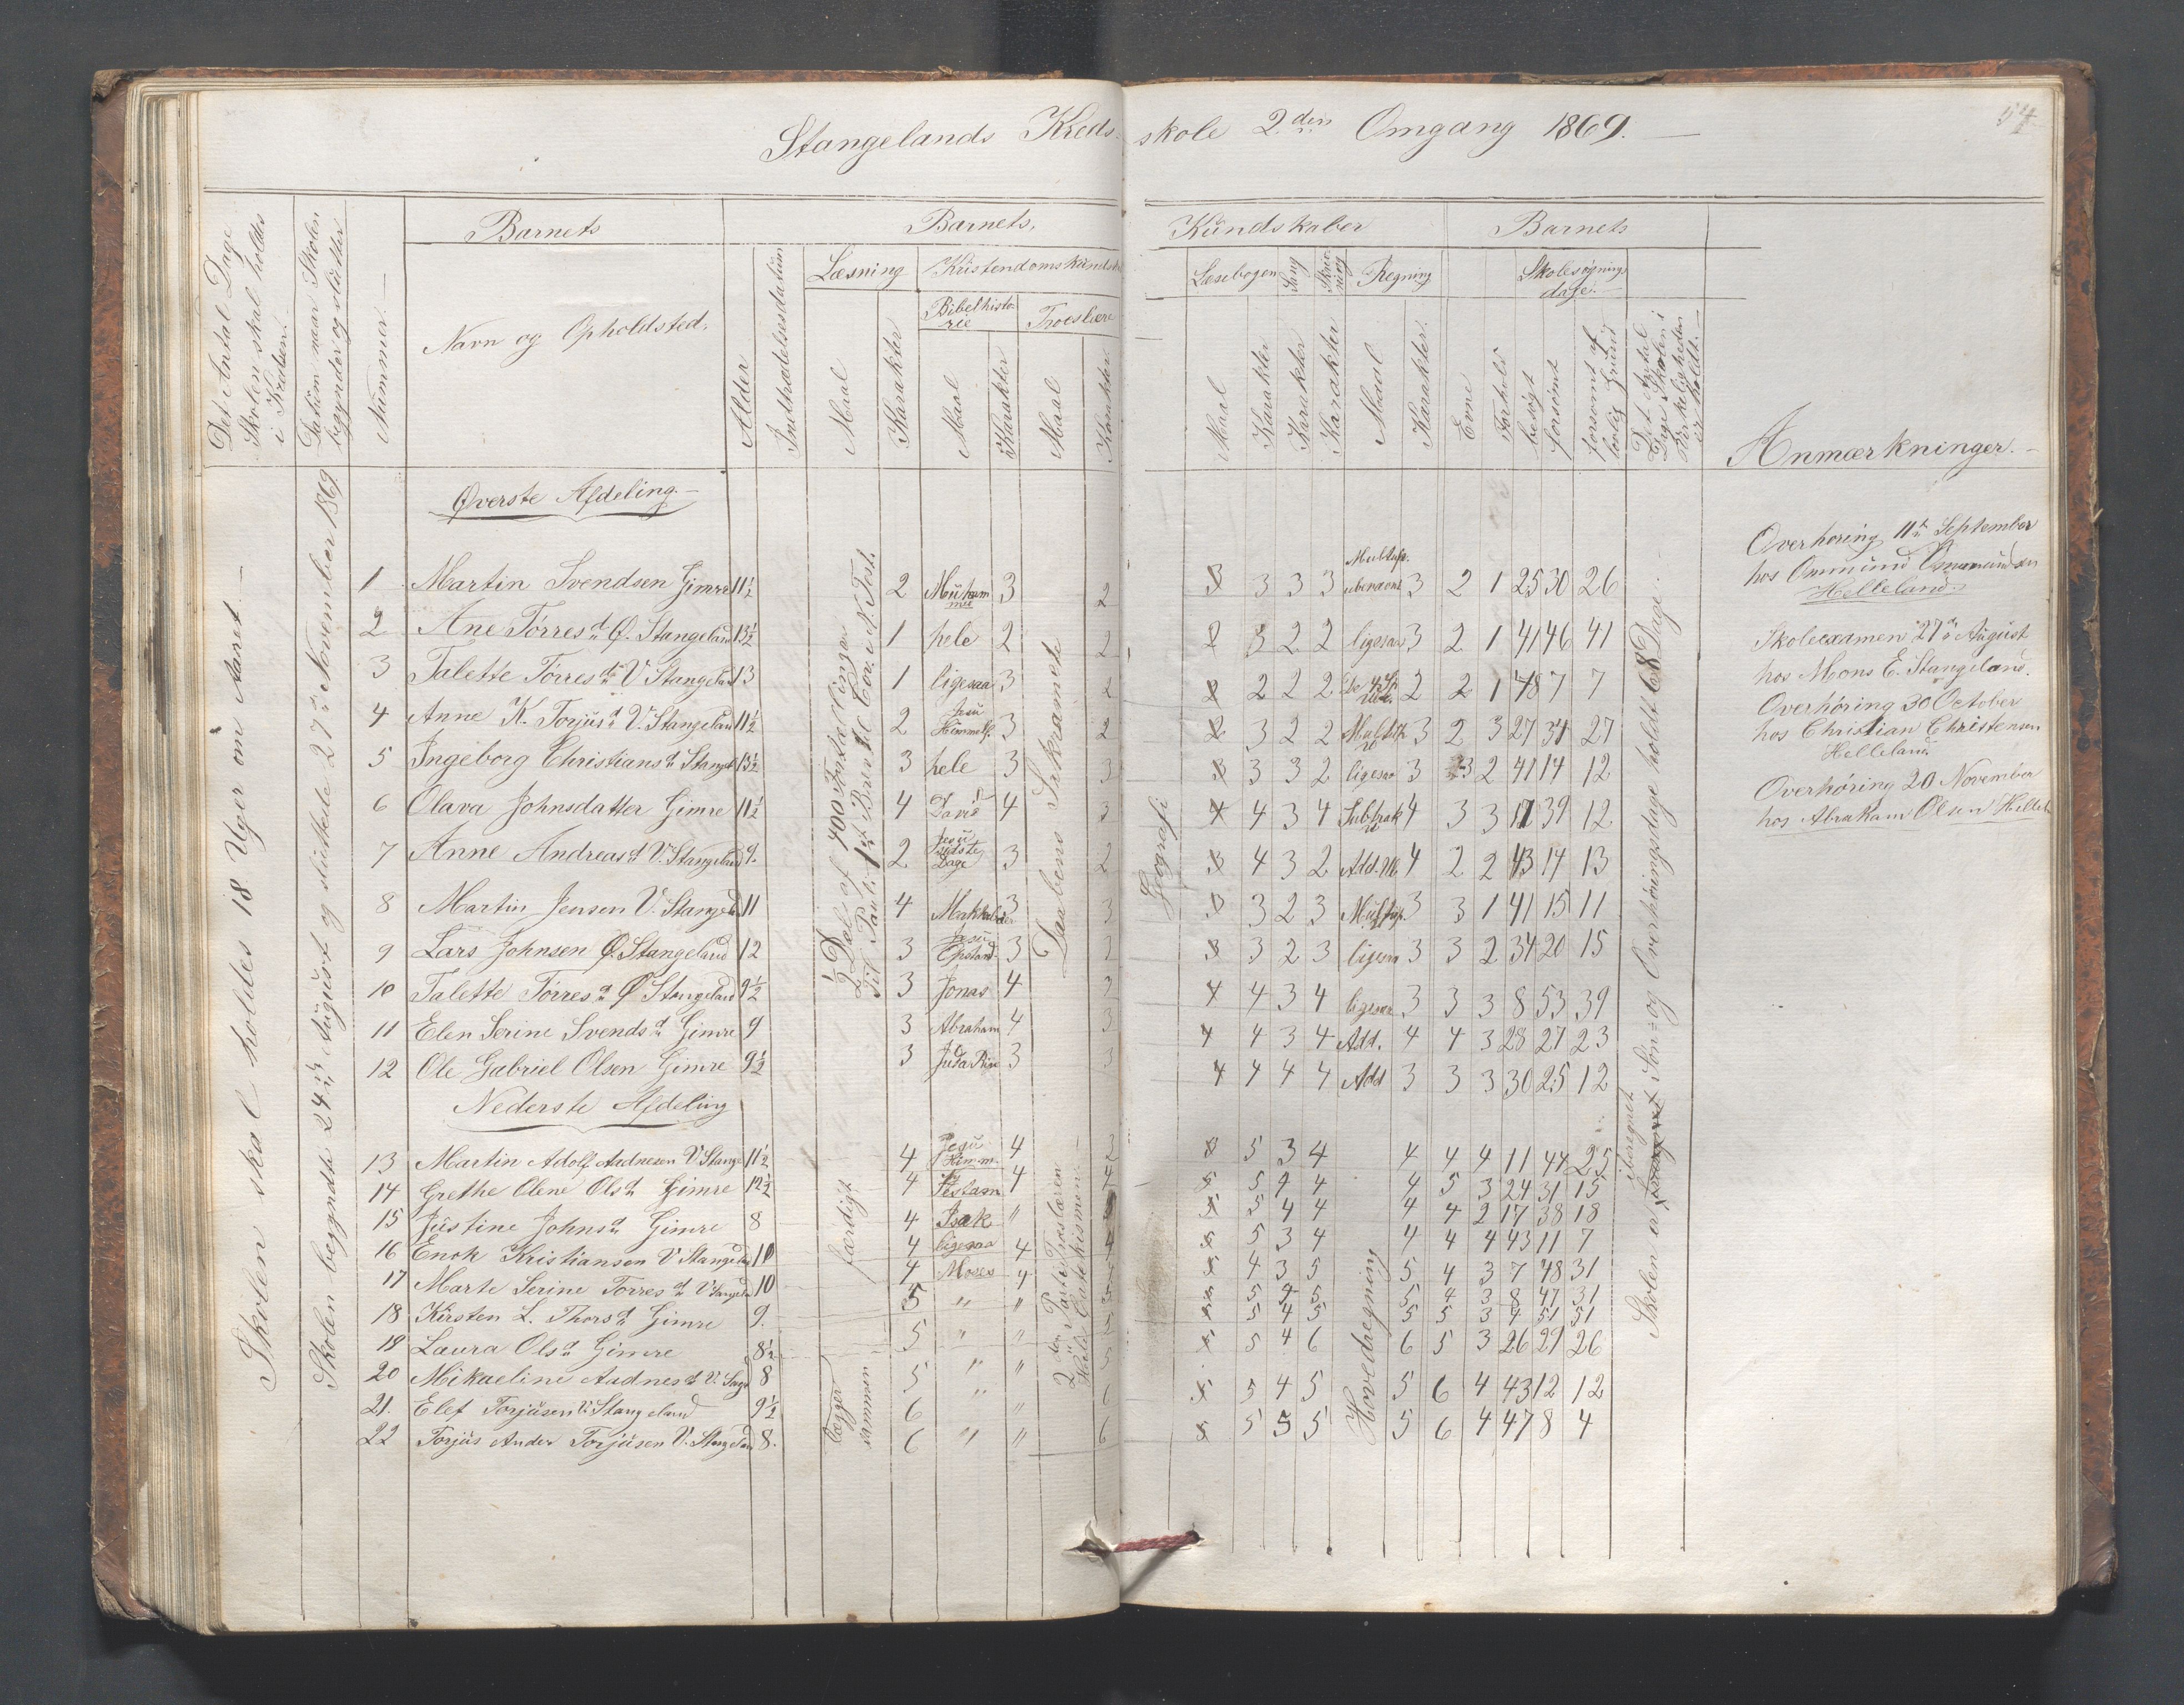 Stangelands Kreds- skole 2den Omgang 1869.
54
Det Antal Dage Skolen skal holdes i Kredsen.
Datum naar Skolen begynder og slutter
Nummer.
Barnets
Navn og Opholdsted.
Alder
Indtrædelsesdatum
Barnets
Læsning
Maal
Karakter
Kristendomskundsk
Bibelhisto-
rie
Maal
Karakter
Troeslære
Maal
Karakter
Kundskaber
Læsebogen
Maal
Karakter
Sang
Karakter
Skriv-
ning
Karakter
Regning
Maal
Karakter
Barnets
Evne
Forhold
Skolesøgnings
dage.
besøgt
forsømt
forsømt af lovlig Grund
Det Antal Dage Skolen i Virkeligheden er holdt.
Anmærkninger.
Skolen skal holdes 18 Uger om Aaret
Skolen begyndte 24de August og sluttede 27de November 1869
Øverste Afdeling
1 Martin Svendsen Gimre 11½ 2 3 2 3 3 3 3 3 2 1 25 30 26
2 Ane Tørresd Ø. Stangeland 13½ 1 hele 2 2 2 3 2 2 ligesaa 3 2 1 41 46 41
3 Talette Tørresd V Stangeland 13 1 ligesaa 3 2 2 2 2 2 2 2 1 48 7 7
4 Anne K. Torjusd V. Stangeland 11½ 2 Jesu Himmelf. 3 2 2 3 2 2 Multip 3 2 3 27 34 27
5 Ingeborg Christiansd Stangel 13½ 3 hele 3 3 3 3 3 2 ligesaa 3 3 2 41 14 12
6 Olava Johnsdatter Gimre 11½ 4 David 4 3 4 4 3 4 Subtrak 4 3 3 17 39 12
7 Anne Andreasd V. Stangeland 9. 2 Jesu sidste Dage 3 2 3 4 3 2 Add. 4 2 2 43 14 13
8 Martin Jensen V. Stangel 11 4 Makkabæer 3 3 3 3 2 3 Multip 3 3 1 41 15 11
9 Lars Johnsen Ø. Stangeland 12 3 Jesu Opstand. 3 3 3 3 2 3 ligesaa 3 3 2 34 20 15
10 Talette Tørresd Ø Stangeland 9½ 3 Jonas 4 2 4 4 3 4 ligesaa 3 3 3 8 53 39
11 Elen Serine Svendsd Gimre 9 3 Abraham 4 3 4 4 3 4 Add. 4 4 3 28 27 23
12 Ole Gabriel Olsen Gimre 9½ 3 Juda Rige 3 3 4 4 4 4 Add 3 3 3 30 25 12
Nederste Afdeling
13 Martin Adolf Aadnesen V Stange 11½ 4 Jesu Himm. 4 3 5 3 4 4 4 4 11 44 25
14 Grethe Olene Olsd Gimre 12½ 4 Testam 4 4 5 5 4 4 4 5 3 24 31 15
15 Justine Johnsd Gimre 8 4 Isak " 5 5 4 4 4 4 2 17 38 18
16 Enok Kristiansen V Stangeland 10 4 ligesaa 4 4 5 3 4 4 4 4 43 11 7
17 Marte Serine Tørresd V Stangeland 10 4 Moses 4 4 3 5 5 4 3 7 48 31
18 Kirsten L. Thorsd Gimre 9. 5 " " 5 4 5 5 4 3 8 47 31
19 Laura Olsd Gimre 8½ 5 " " 5 5 4 5 5 5 3 4 51 51
20 Mikaeline Aadnesd V. Stage 8 5 " " 5 5 4 6 6 5 3 26 29 26
21. Elef Torjusen V. Stangeland 9½ 6 " " 6 5 4 5 5 6 4 43 12 12
22 Torjus Ander Torjusen V. Stangeland 8. 6 " " 6 5 5 3 5 5 6 4 47 8 4
½ Del af 400 Fortællinger
Til Pauli 1ste Brev til Cor. N. Test.
færdigt
lægger sammen
Daabens Sakramente
2den Part Troeslæren
Hele Catekismen
Geografi
Hovedregning
Skolen er iberegnet Søn- og Overhøringsdage holdt 68 Dage.
Overhøring 11te September
hos Ommund Ommundsen
Helleland.
Skoleexamen 27de August
hos Mons E. Stangeland.
Overhøring 30 October
hos Christian Christensen
Helleland
Overhøring 20 November
hos Abraham Olsen Hellel